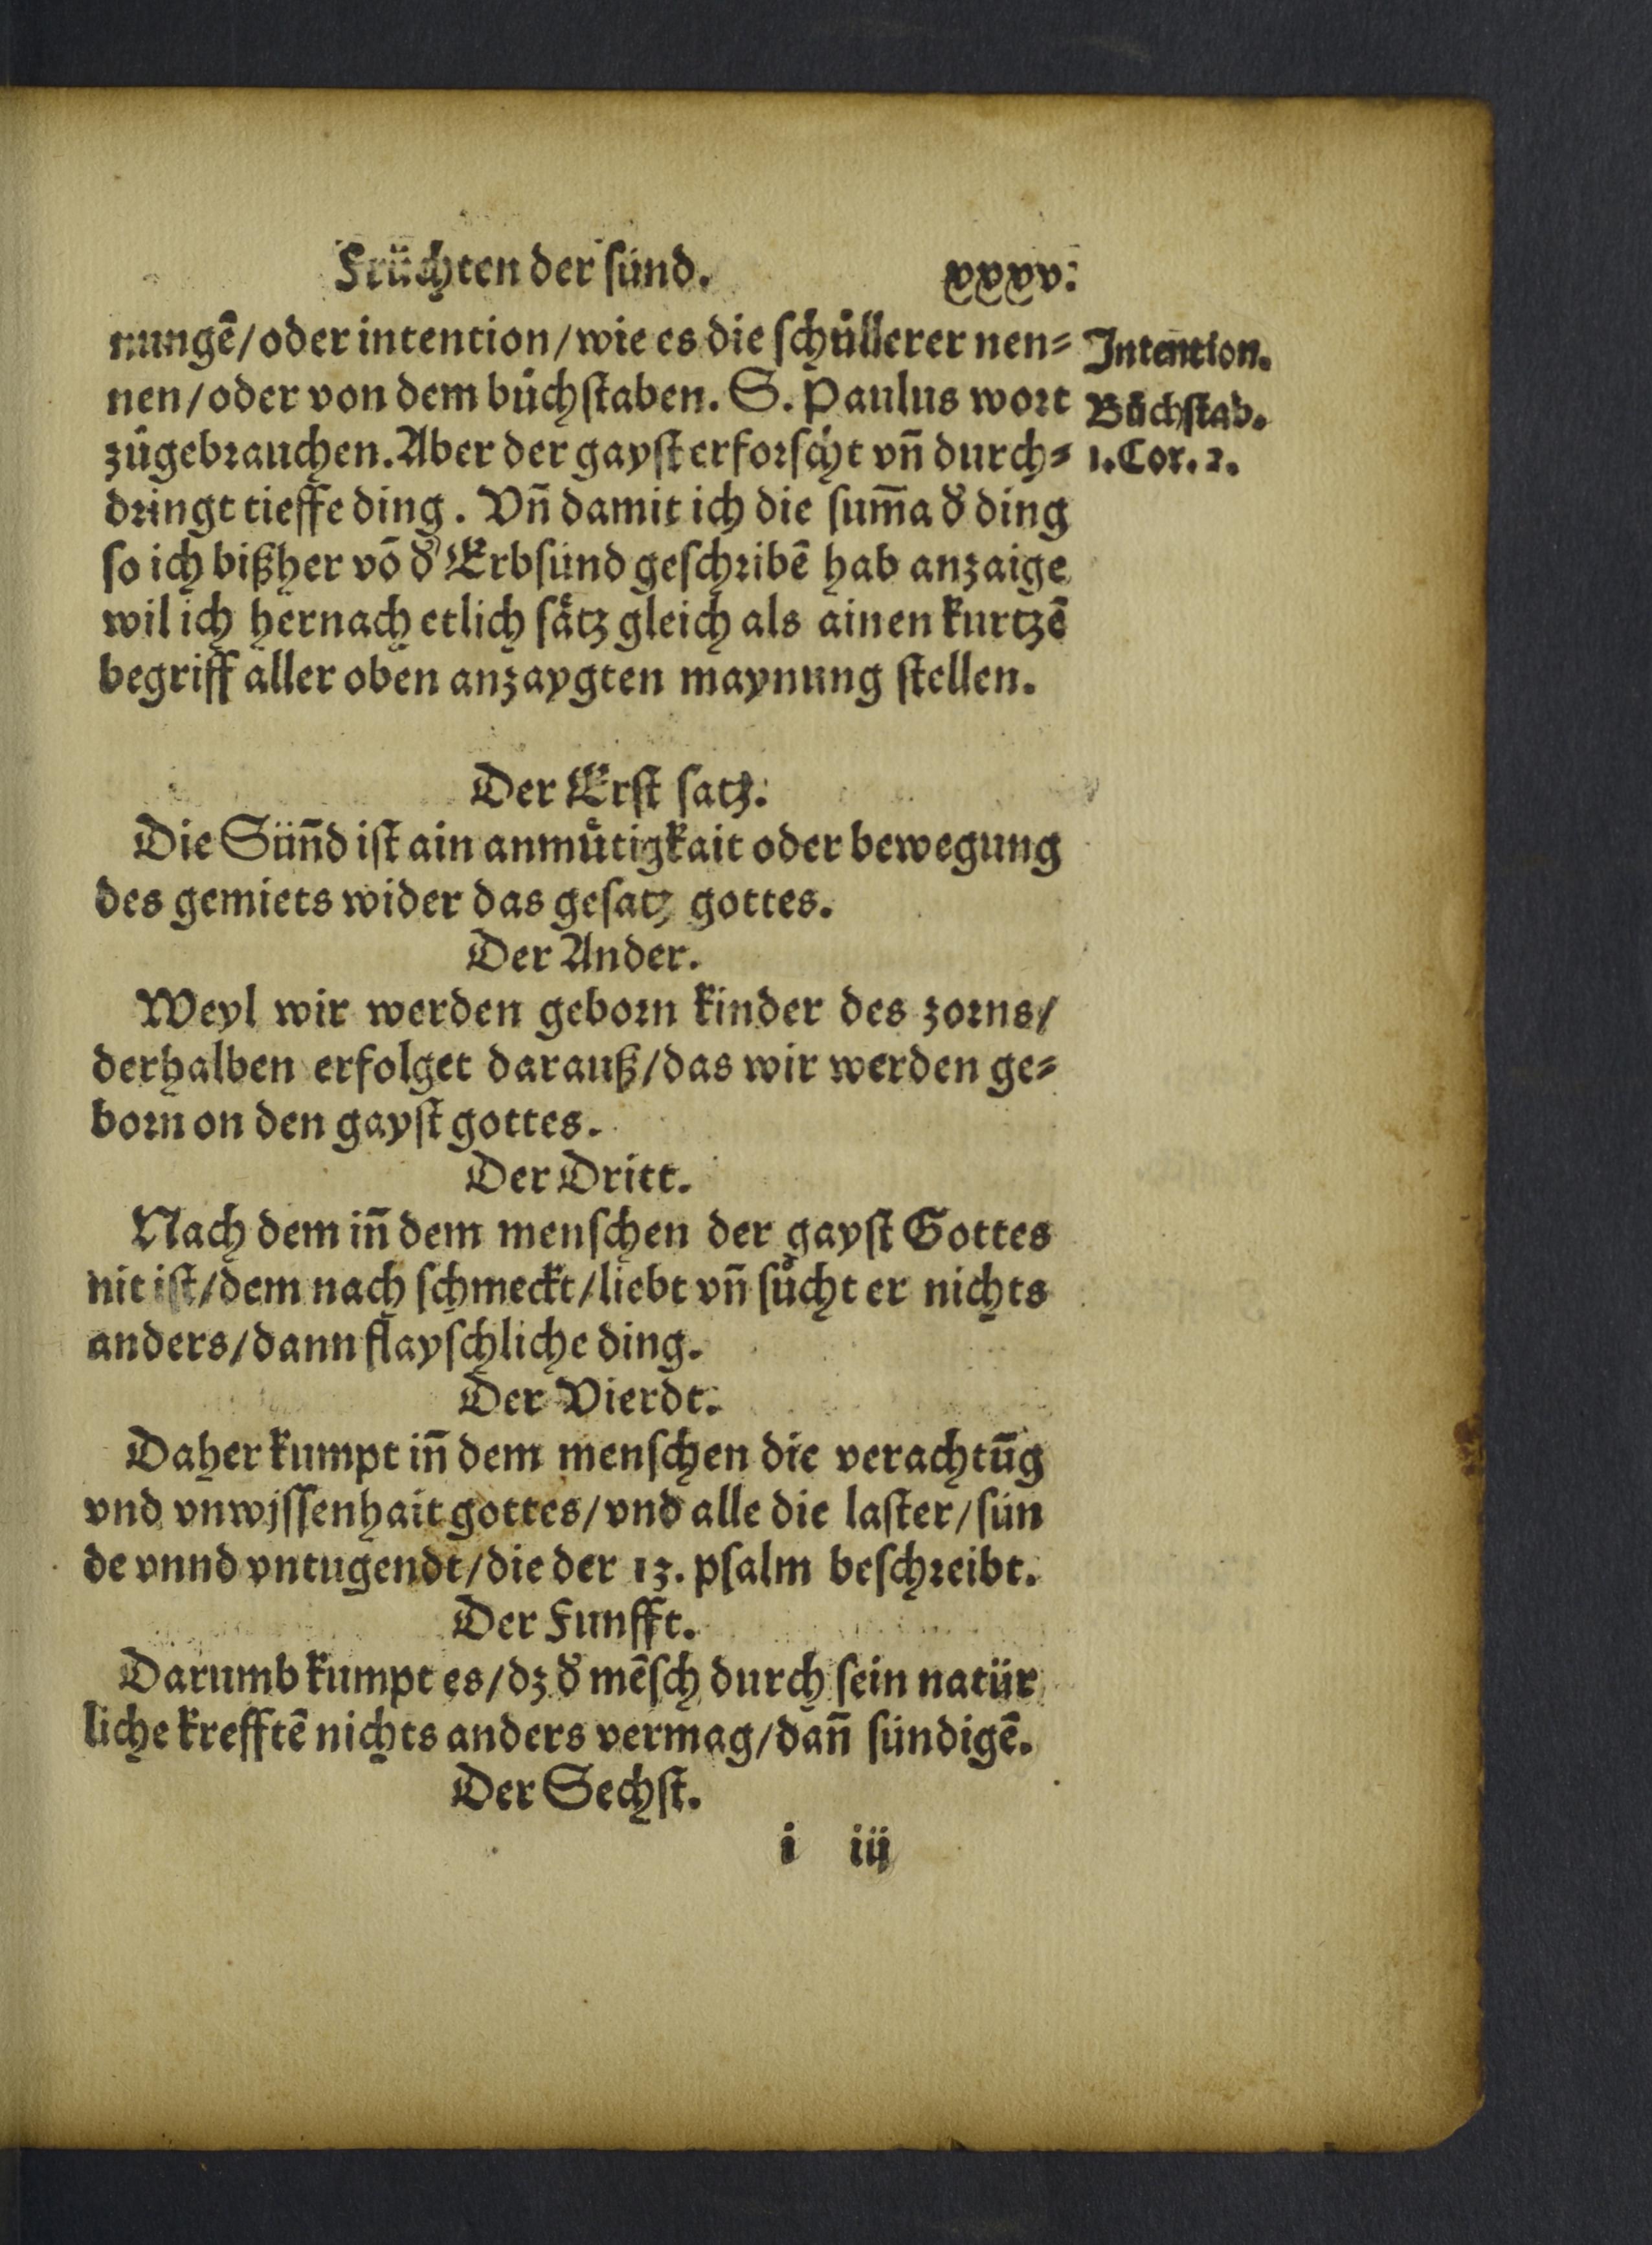 Früchten der sünd. xxxv.
nungē/oder intention/wie es die schůllerer nen⸗
Intention.
nen/oder von dem bůchstaben. S. Paulus wort
Bůchstab.
zůgebrauchen. Aber der gayst erforscht vn̄ durch⸗
1. Cor. 2.
dringt tieffe ding. Vn̄ damit ich die sum̄a d̕ ding
so ich bißher vō d̕ Erbsünd geschribē hab anzaige
wil ich hernach etlich sätz gleich als ainen kurtzē
begriff aller oben anzaygten maynung stellen.
Der Erst satz.
Die Sün̄d ist ain anmůtigkait oder bewegung
des gemiets wider das gesatz gottes.
Der Ander.
Weyl wir werden geborn kinder des zorns/
derhalben erfolget darauß/das wir werden ge⸗
born on den gayst gottes.
Der Dritt.
Nach dem in̄ dem menschen der gayst Gottes
nit ist/dem nach schmeckt/liebt vn̄ sůcht er nichts
anders/dann flayschliche ding.
Der Vierdt.
Daher kumpt in̄ dem menschen die verachtūg
vnd vnwissenhait gottes/vnd alle die laster/sün
de vnnd vntugendt/die der 13. psalm beschreibt.
Der Funfft.
Darumb kumpt es/dz d̕ mēsch durch sein natür
liche krefftē nichts anders vermag/dan̄ sündigē.
Der Sechst.
i iij